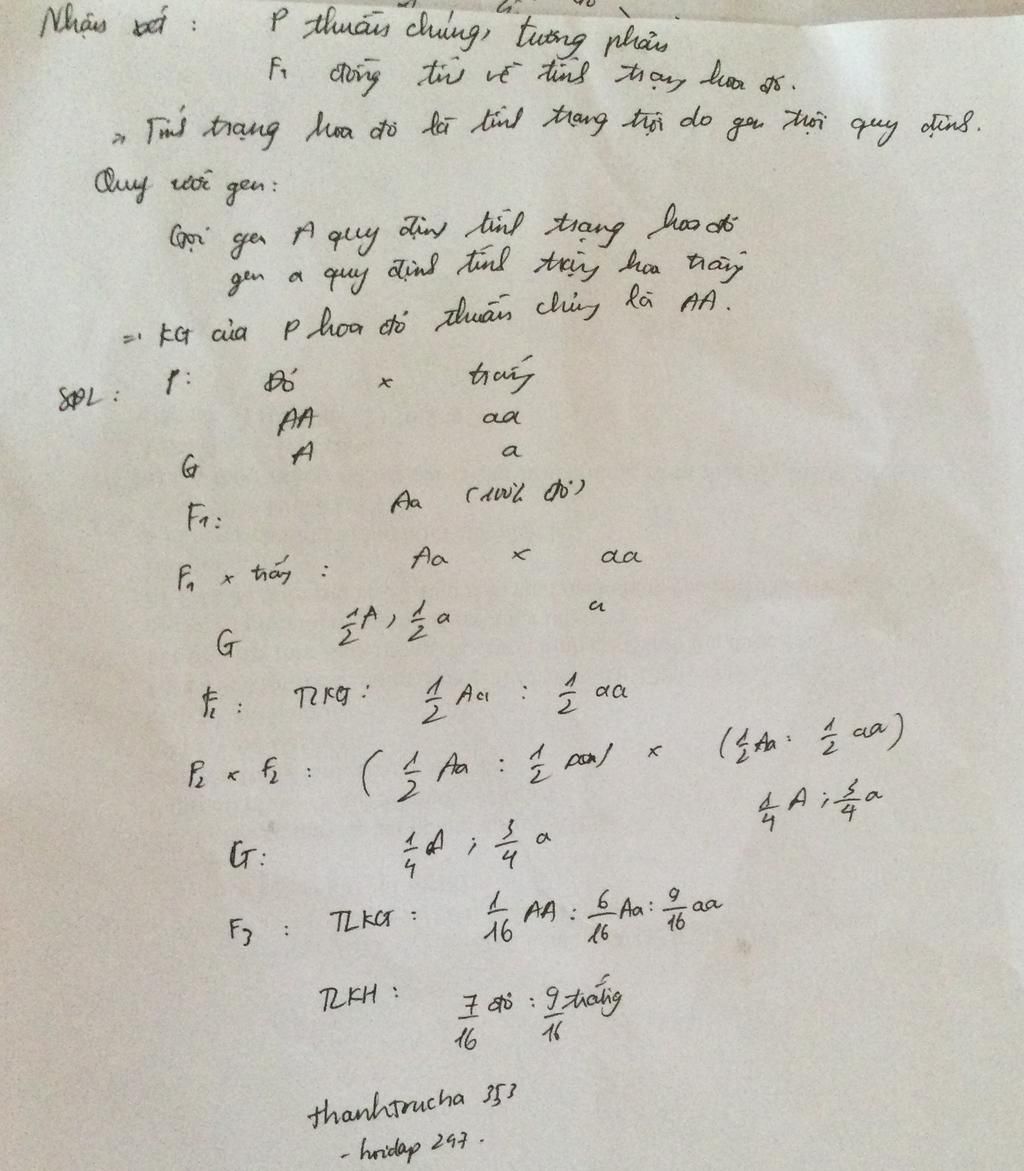 Nhận xét : P thuần chủng, tương phản
F1 đồng tính về tính trạng hoa đỏ.
=> Tính trạng hoa đỏ là tính trạng trội do gen trội quy định.
Quy ước gen:
Gọi gen A quy định tính trạng hoa đỏ
gen a quy định tính trạng hoa trắng
=> KG của P hoa đỏ thuần chủng là AA.
SĐL : P: Đỏ x trắng
AA aa
G A a
F1: Aa (100% đỏ)
F1 x trắng : Aa x aa
G 1/2 A, 1/2 a a
F2 : TLKG: 1/2 Aa : 1/2 aa
F2 x F2 : (1/2 Aa : 1/2 aa) x (1/2 Aa : 1/2 aa)
G: 1/4 A ; 3/4 a 1/4 A ; 3/4 a
F3 : TLKG : 1/16 AA : 6/16 Aa : 9/16 aa
TLKH : 7/16 đỏ : 9/16 trắng
thanhtrucha 353
- hoidap 247.